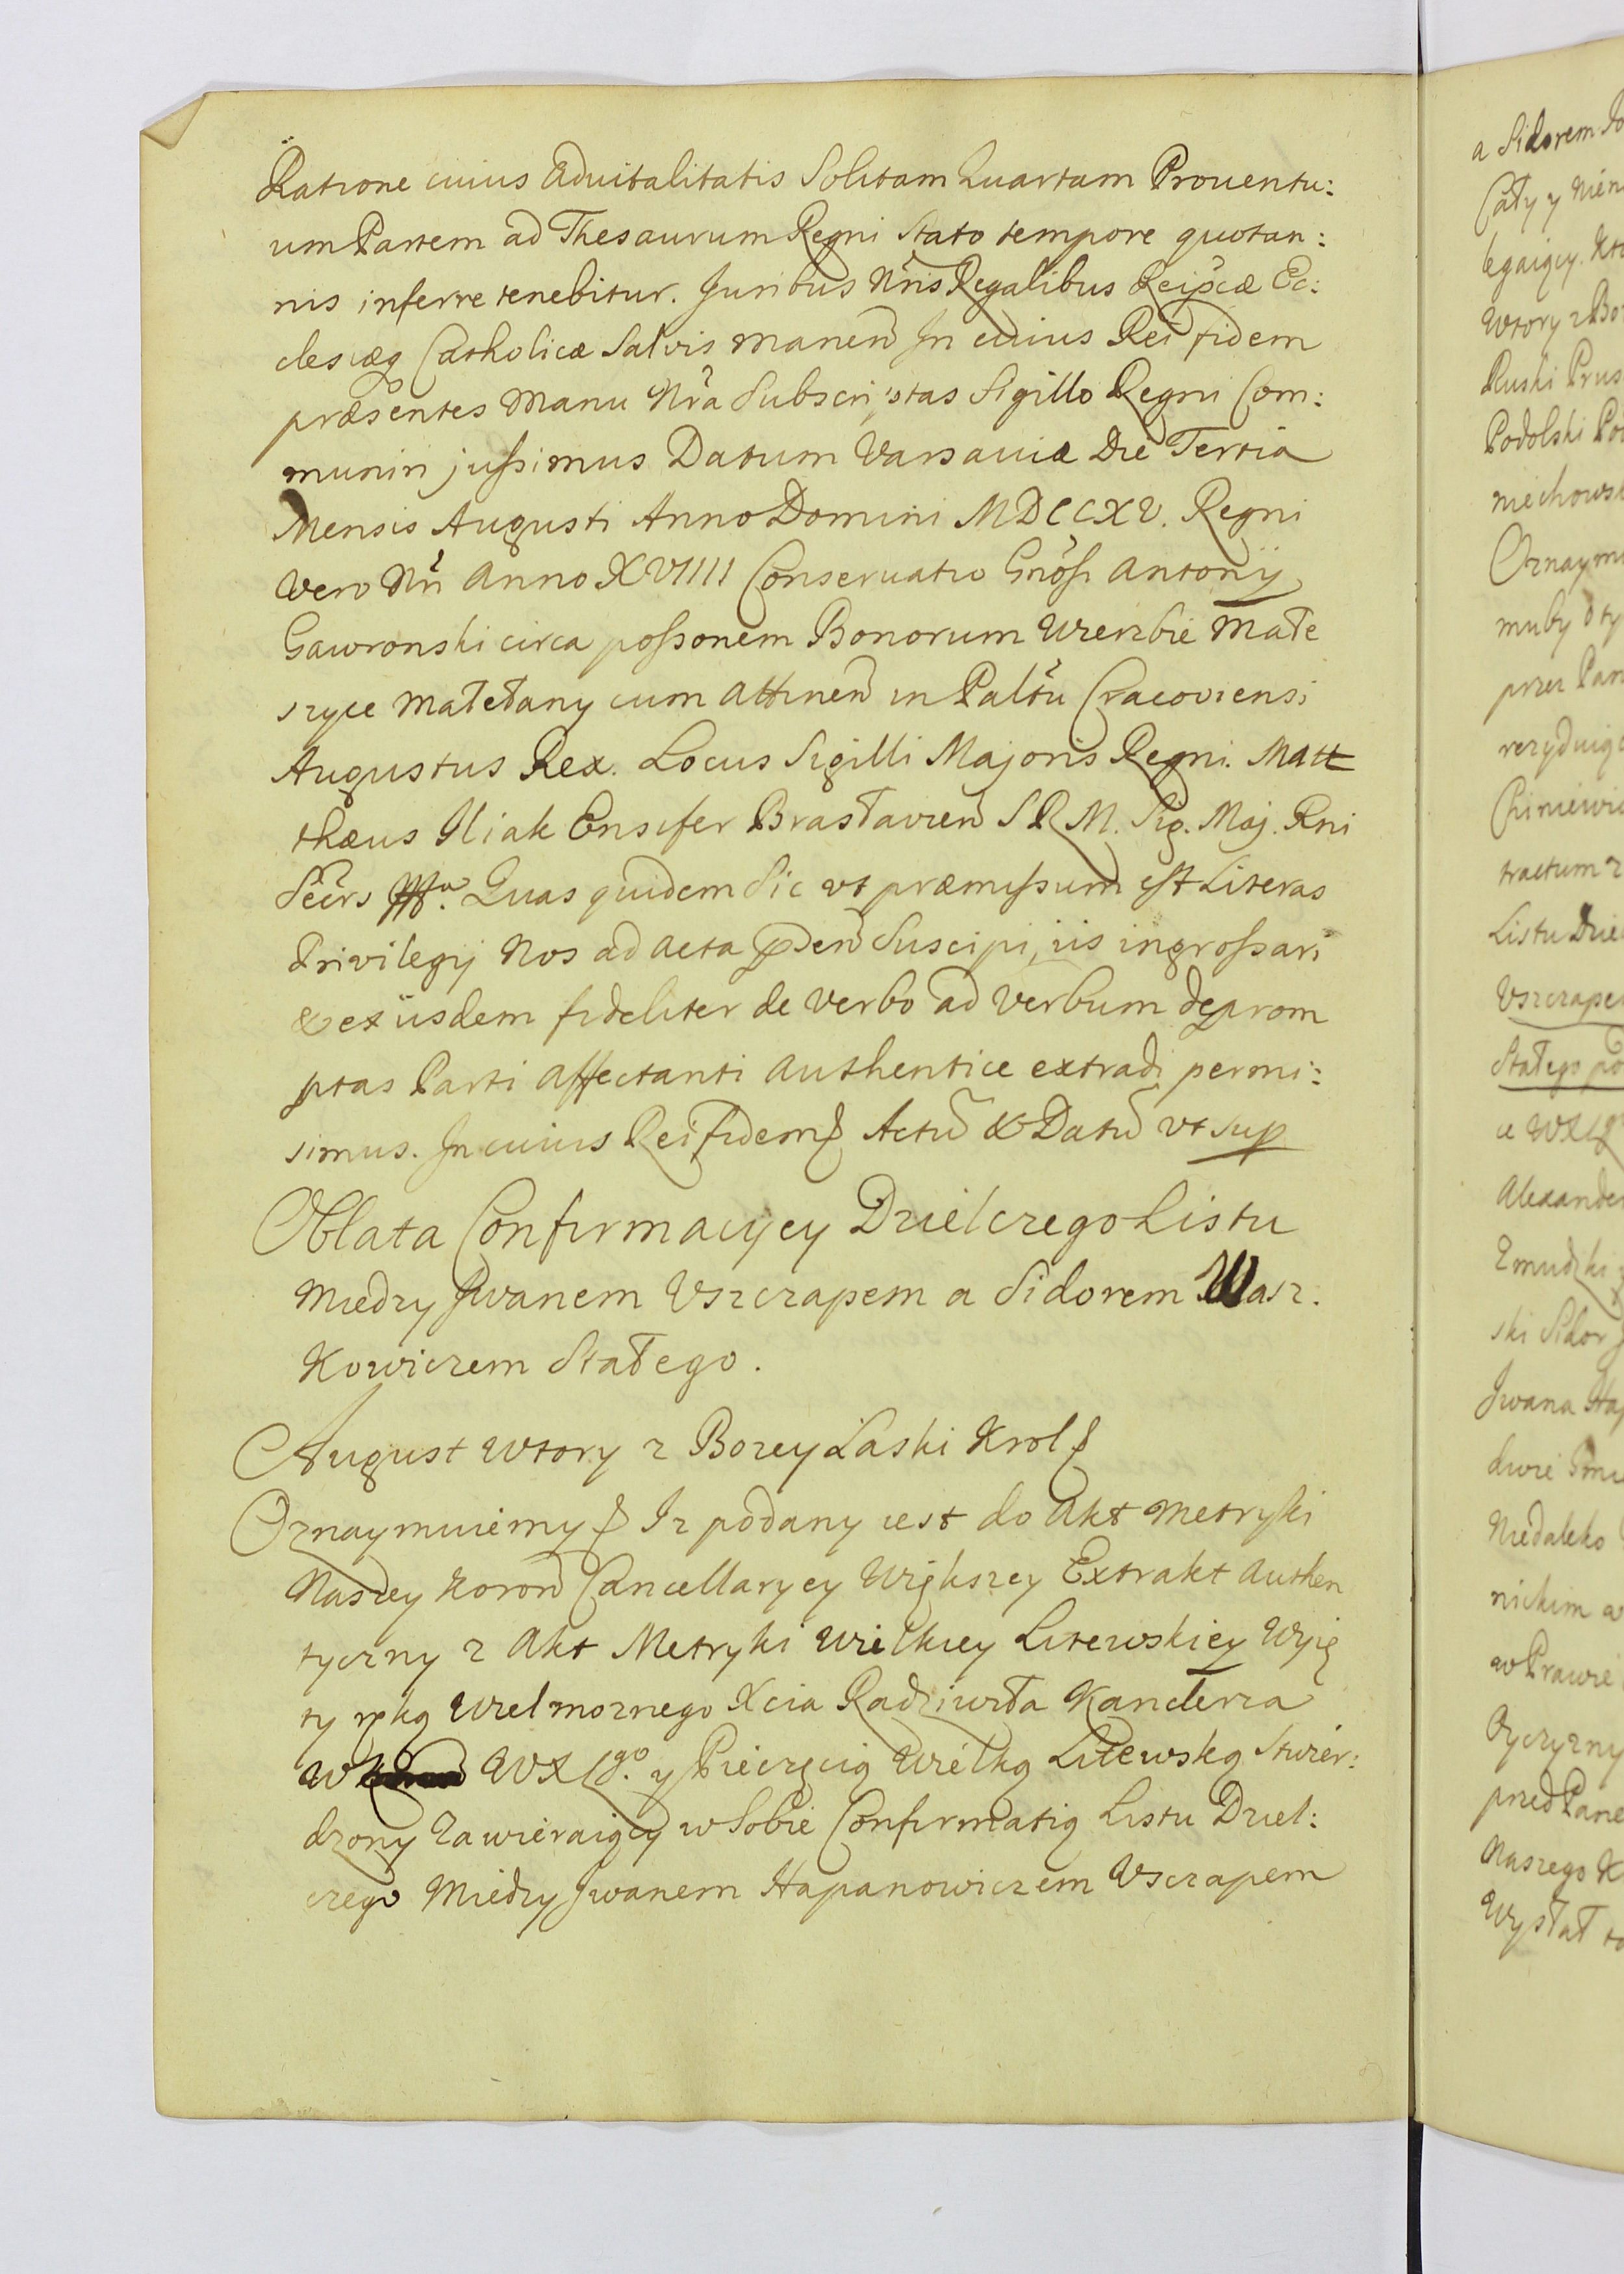 Ratione cuius Advitalitatis Solitam Quartam Proventu:
um Partem ad Thesaurum Regni Stato tempore quotan:
nis inferre tenebitur. Juribus Nris Regalibus Reipcæ Ec:
clesiæq Catholicæ Salvis manen In cuius Rei fidem
præsentes Manu Nra Subscriptas Sigillo Regni Com:
muniri jussimus Datum Varsaviæ Die Tertia
Mensis Augusti Anno Domini MDCCXV. Regni
Vero Nri Anno XVIIII Conservatio Gnosi Antonij
Gawronski circa possonem Bonorum Wierzbie Małe
szyce Małełany cum Attinen in Paltu Cracoviensi
Augustus Rex. Locus Sigilli Majoris Regni. Matt
thæus Iliak Ensifer Brasłavien S R M. Sig. Maj. Rni
Secrs Quas quidem Sic ut præmissum est Literas
Privilegij Nos ad Acta pden Suscipi, iis ingrossari
& ex iisdem fideliter de verbo ad verbum deprom
ptas Parti Affectanti Authentice extradi permi:
simus. In cuius Rei fidem Actu & Datu ut sup
Oblata Confirmacyey Dzielczego Listu
Miedzy Jwanem Vszczapem a Sidorem Wasz.
Kowiczem Stałego.
August Wtory z Bozey Łaski Krol
Oznaymuiemy Iz podany iest do Akt Metryki
Naszey Koron Cancellaryey Większey Extrakt Authen
tyczny z Akt Metryki Wielkiey Litewskiey Wyię
ty ręką Wielmoznego Xcia Radziwiła Kanclerza
W WXLgo. y Pieczęcią Wielką Litewską Stwier:
dzony Zawieraiący w Sobie Confirmatią Listu Dziel:
czego Miedzy Jwanem Hapanowiczem Vsczapem
a Sidorem
Cały y
Wtory z
Ruski Prus
Podolski
przez Pan
Listu
Vszczape
Stałego
Alexander
Zmudzki
ski Sidor
Jwana
Niedaleko
w Prawie
Oyczyzny
przed Pane
Naszego
Wysłał